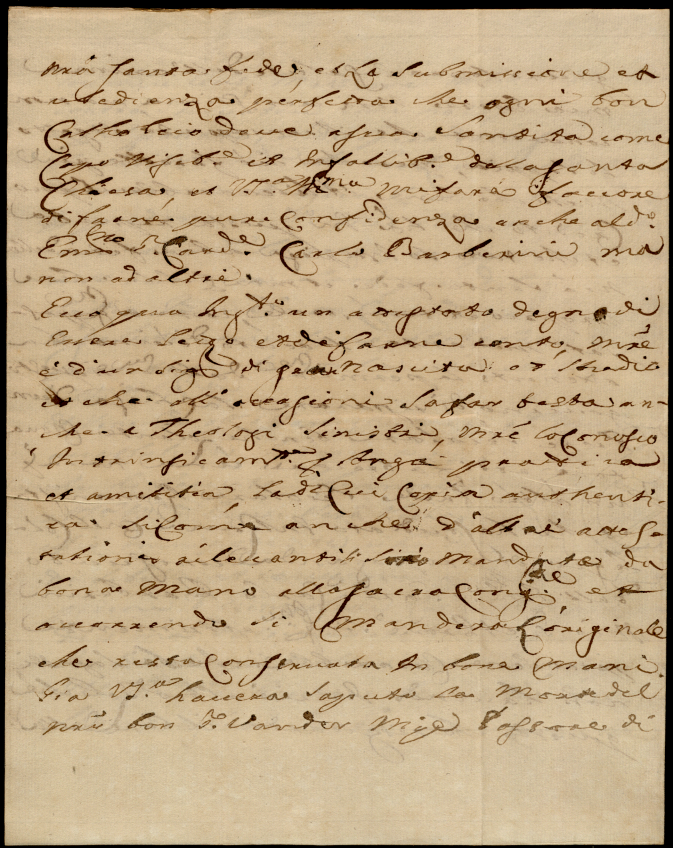 nrā santa fede, et la submissione et
ubedienza perfetta che ogni bon
Catholicio deve a sua Santita come
Capo Visib.e et Infallib.e dela santa
Chiesa, et V.ra Ill.ma mi fara favore
di farne pure Confidenza anche al d.o
Em.mo S.r Card.e Carlo Barberini ma
non ad altri.
Ecco qua Ing.to un attestato degno di
Essere letto et di farne conto, mrē
è d'un Sig.r di gran nascita et studio
et che all' occasioni sa far testa an-
che a Theologi Sinistri, mrē lo Conosco
Intrinsicam.te p longa practica
et amititia, la di Cui Copia authenti-
ca sicome anche d'altri attes-
tationi rilevantissimi Mandate da
bone Mano alla sacra Cong.ne et
occorrendo si Mandera l'originale
che resta Conservata In bone Mani.
Gia V.S.a havera saputo la Morte del
nrō bon S.r Vander Mye Pastore di